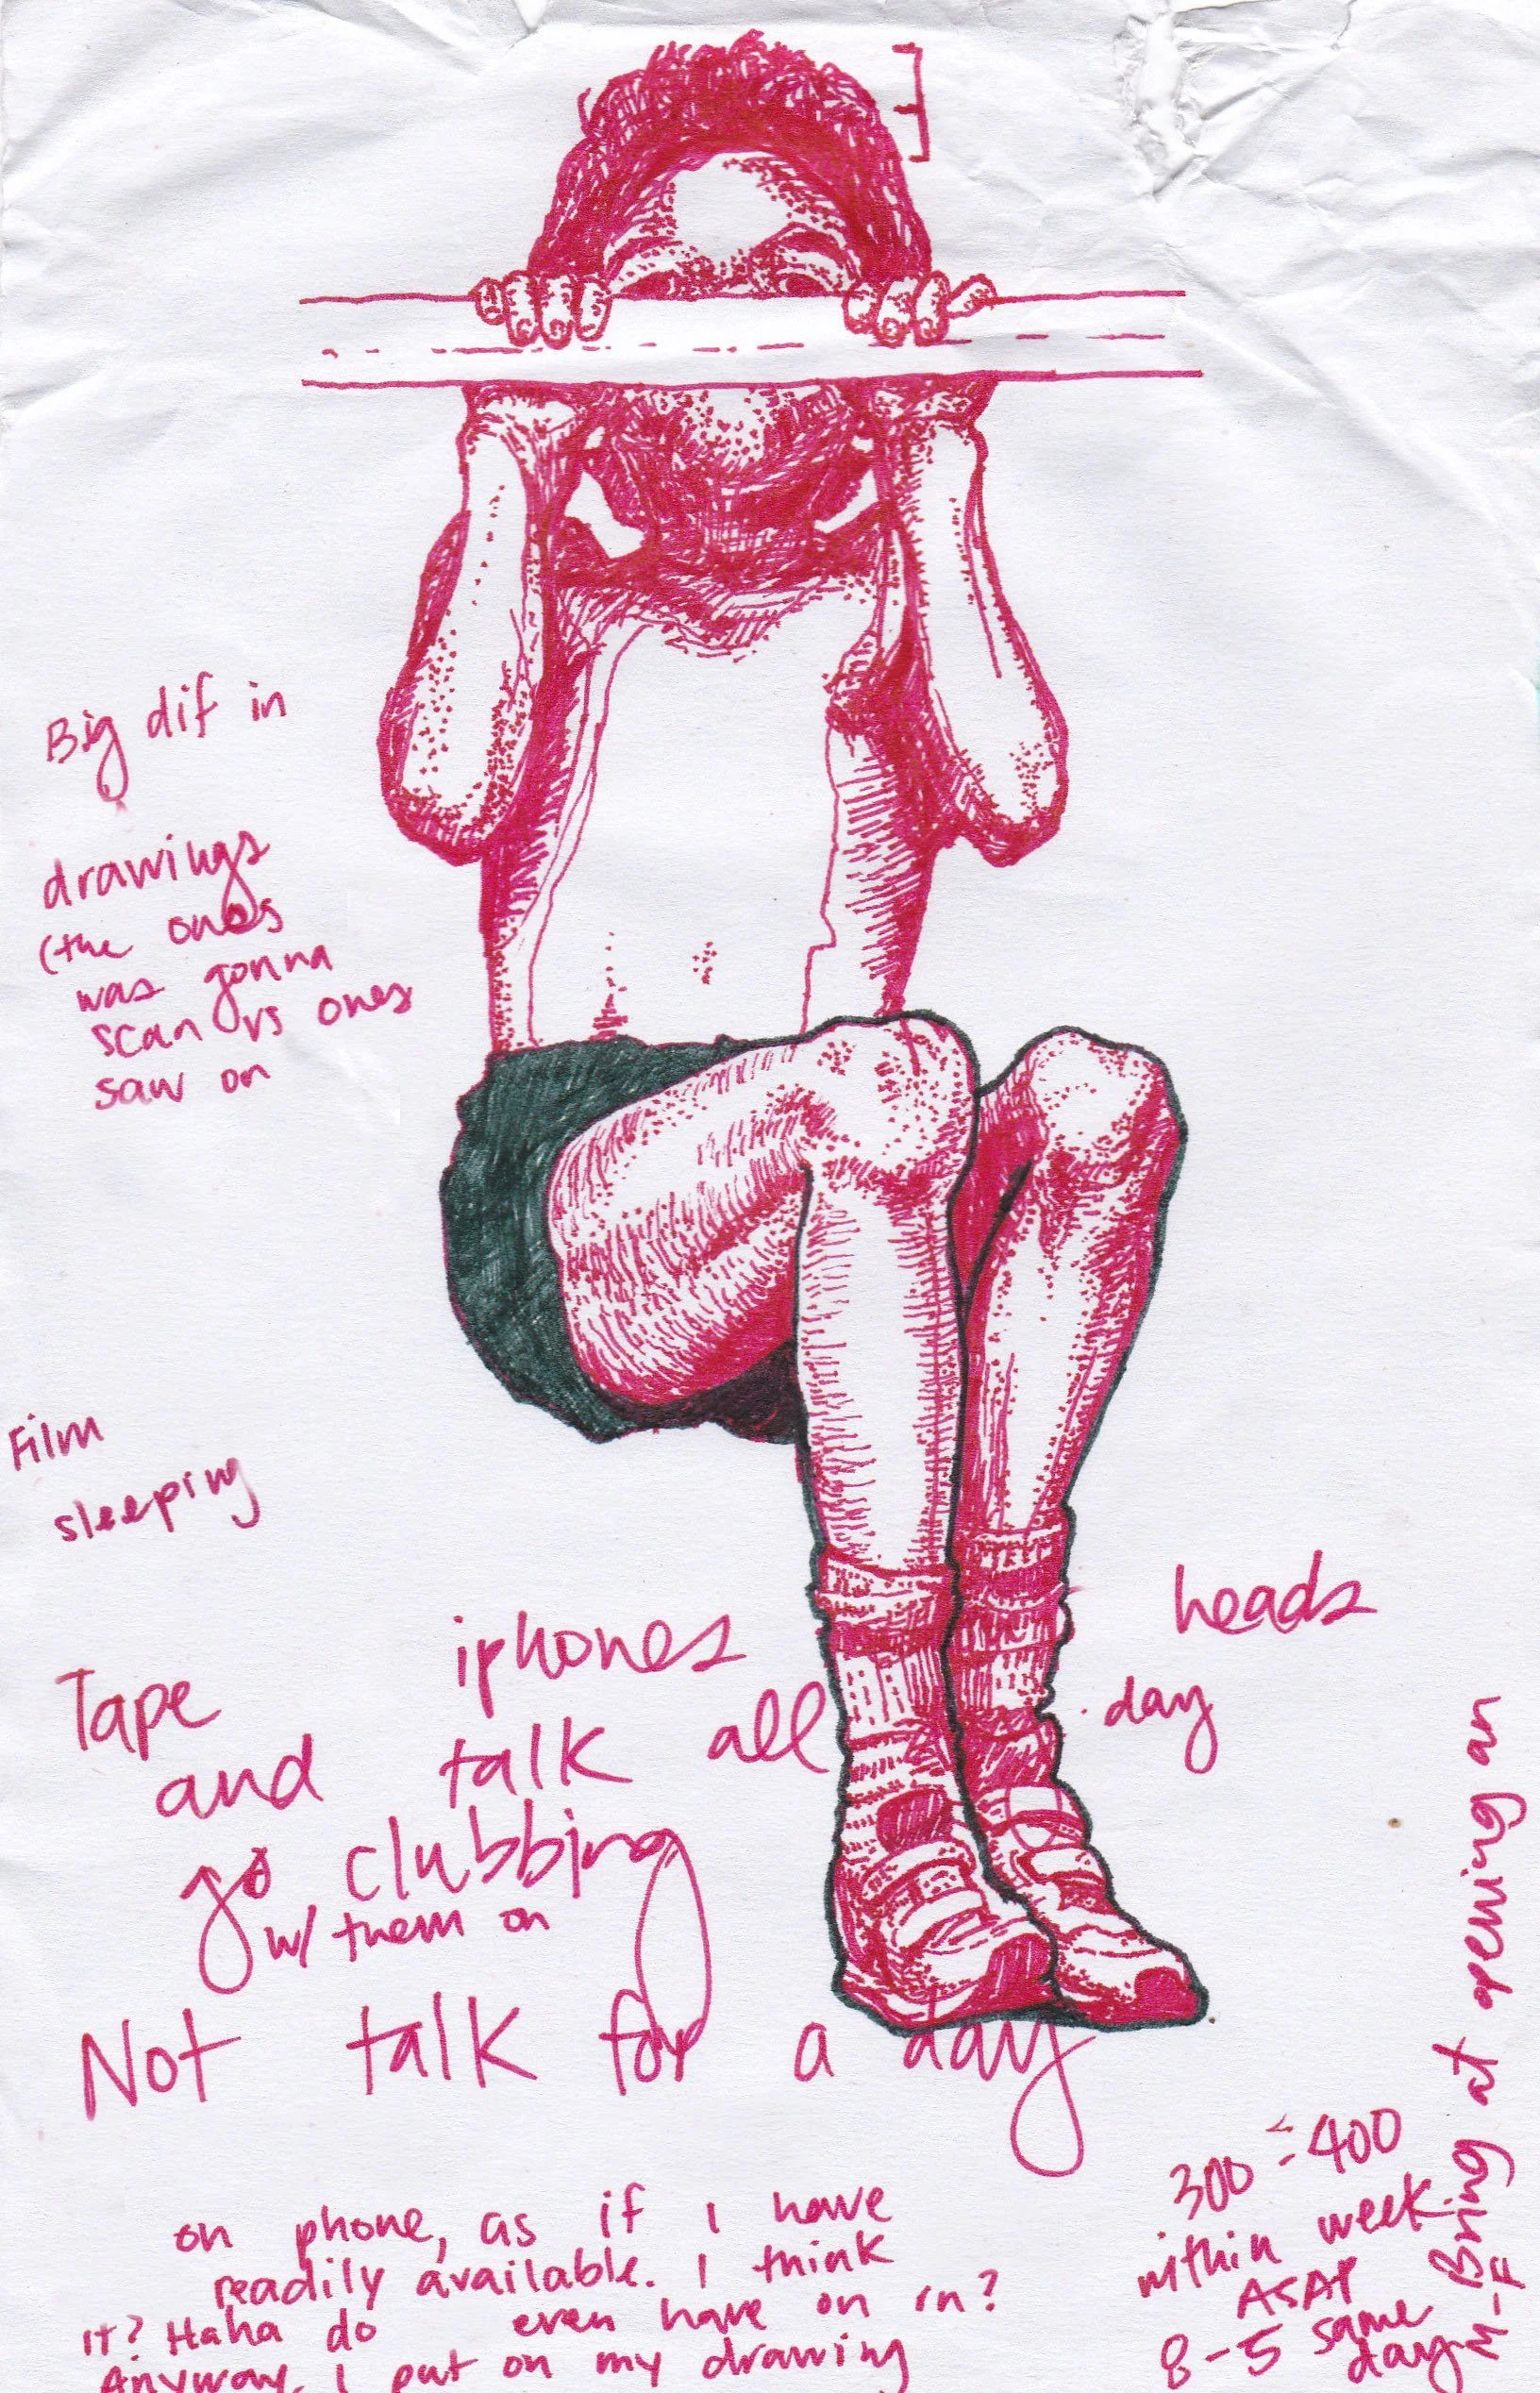 Big dif in
drawings
(the ones
was gonna
scan vs ones
saw on
Film
sleeping
Tape iphones heads
and talk all day
go clubbing
w/ them on
Not talk for a day
on phone, as if I have
readily available. I think
it? Haha do even have on in?
Anyway, I put on my drawing
300-400
within week
ASAP
8-5 same
day
Bring at opening an
M-F